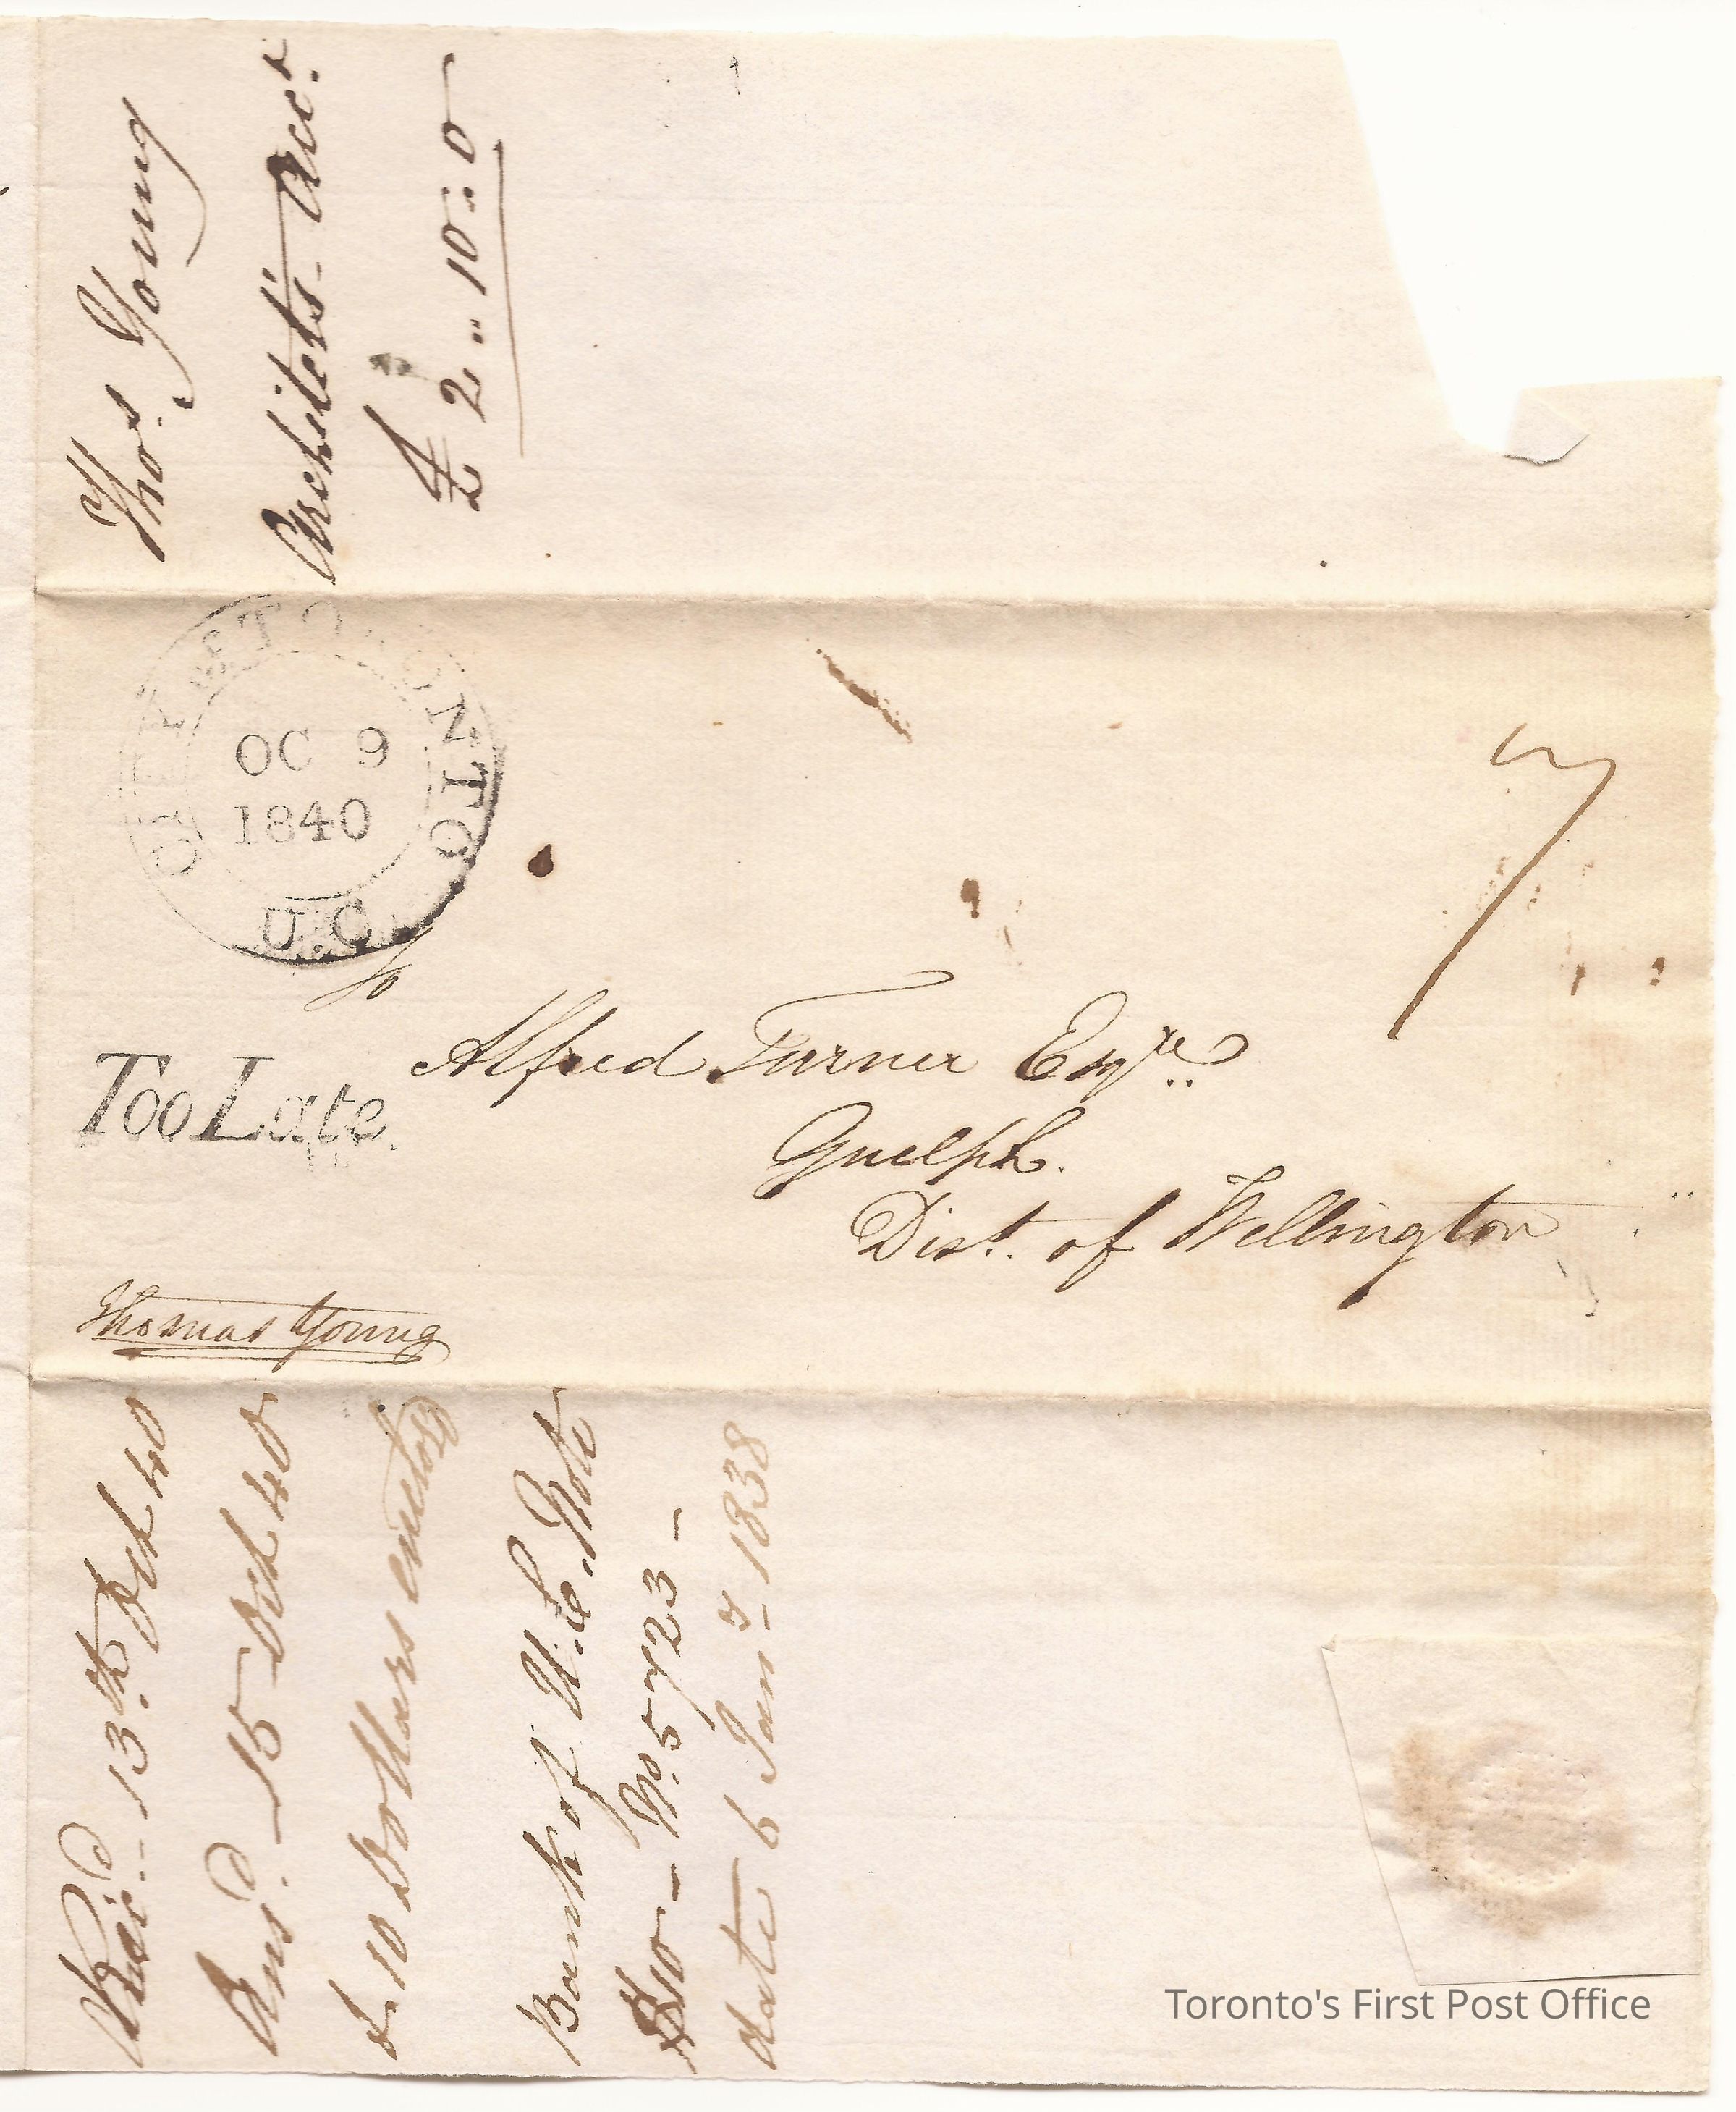 Thos. Young
Architets- Acct.
£ 2 .. 10 .. 0
CITY OF TORONTO
OC 9
1840
U.C.
To
Too Late.
Alfred Turner Esqre..
Guelph.
Dist. of Wellington
7
Thomas Young
Recd.. 13th. Oct 40
Ansd. - 15 Oct 40
& 10 Dollars enclosd
Bank of U.C. Note
$10 - No. 5723 -
date 6 Jany 1838
Toronto's First Post Office